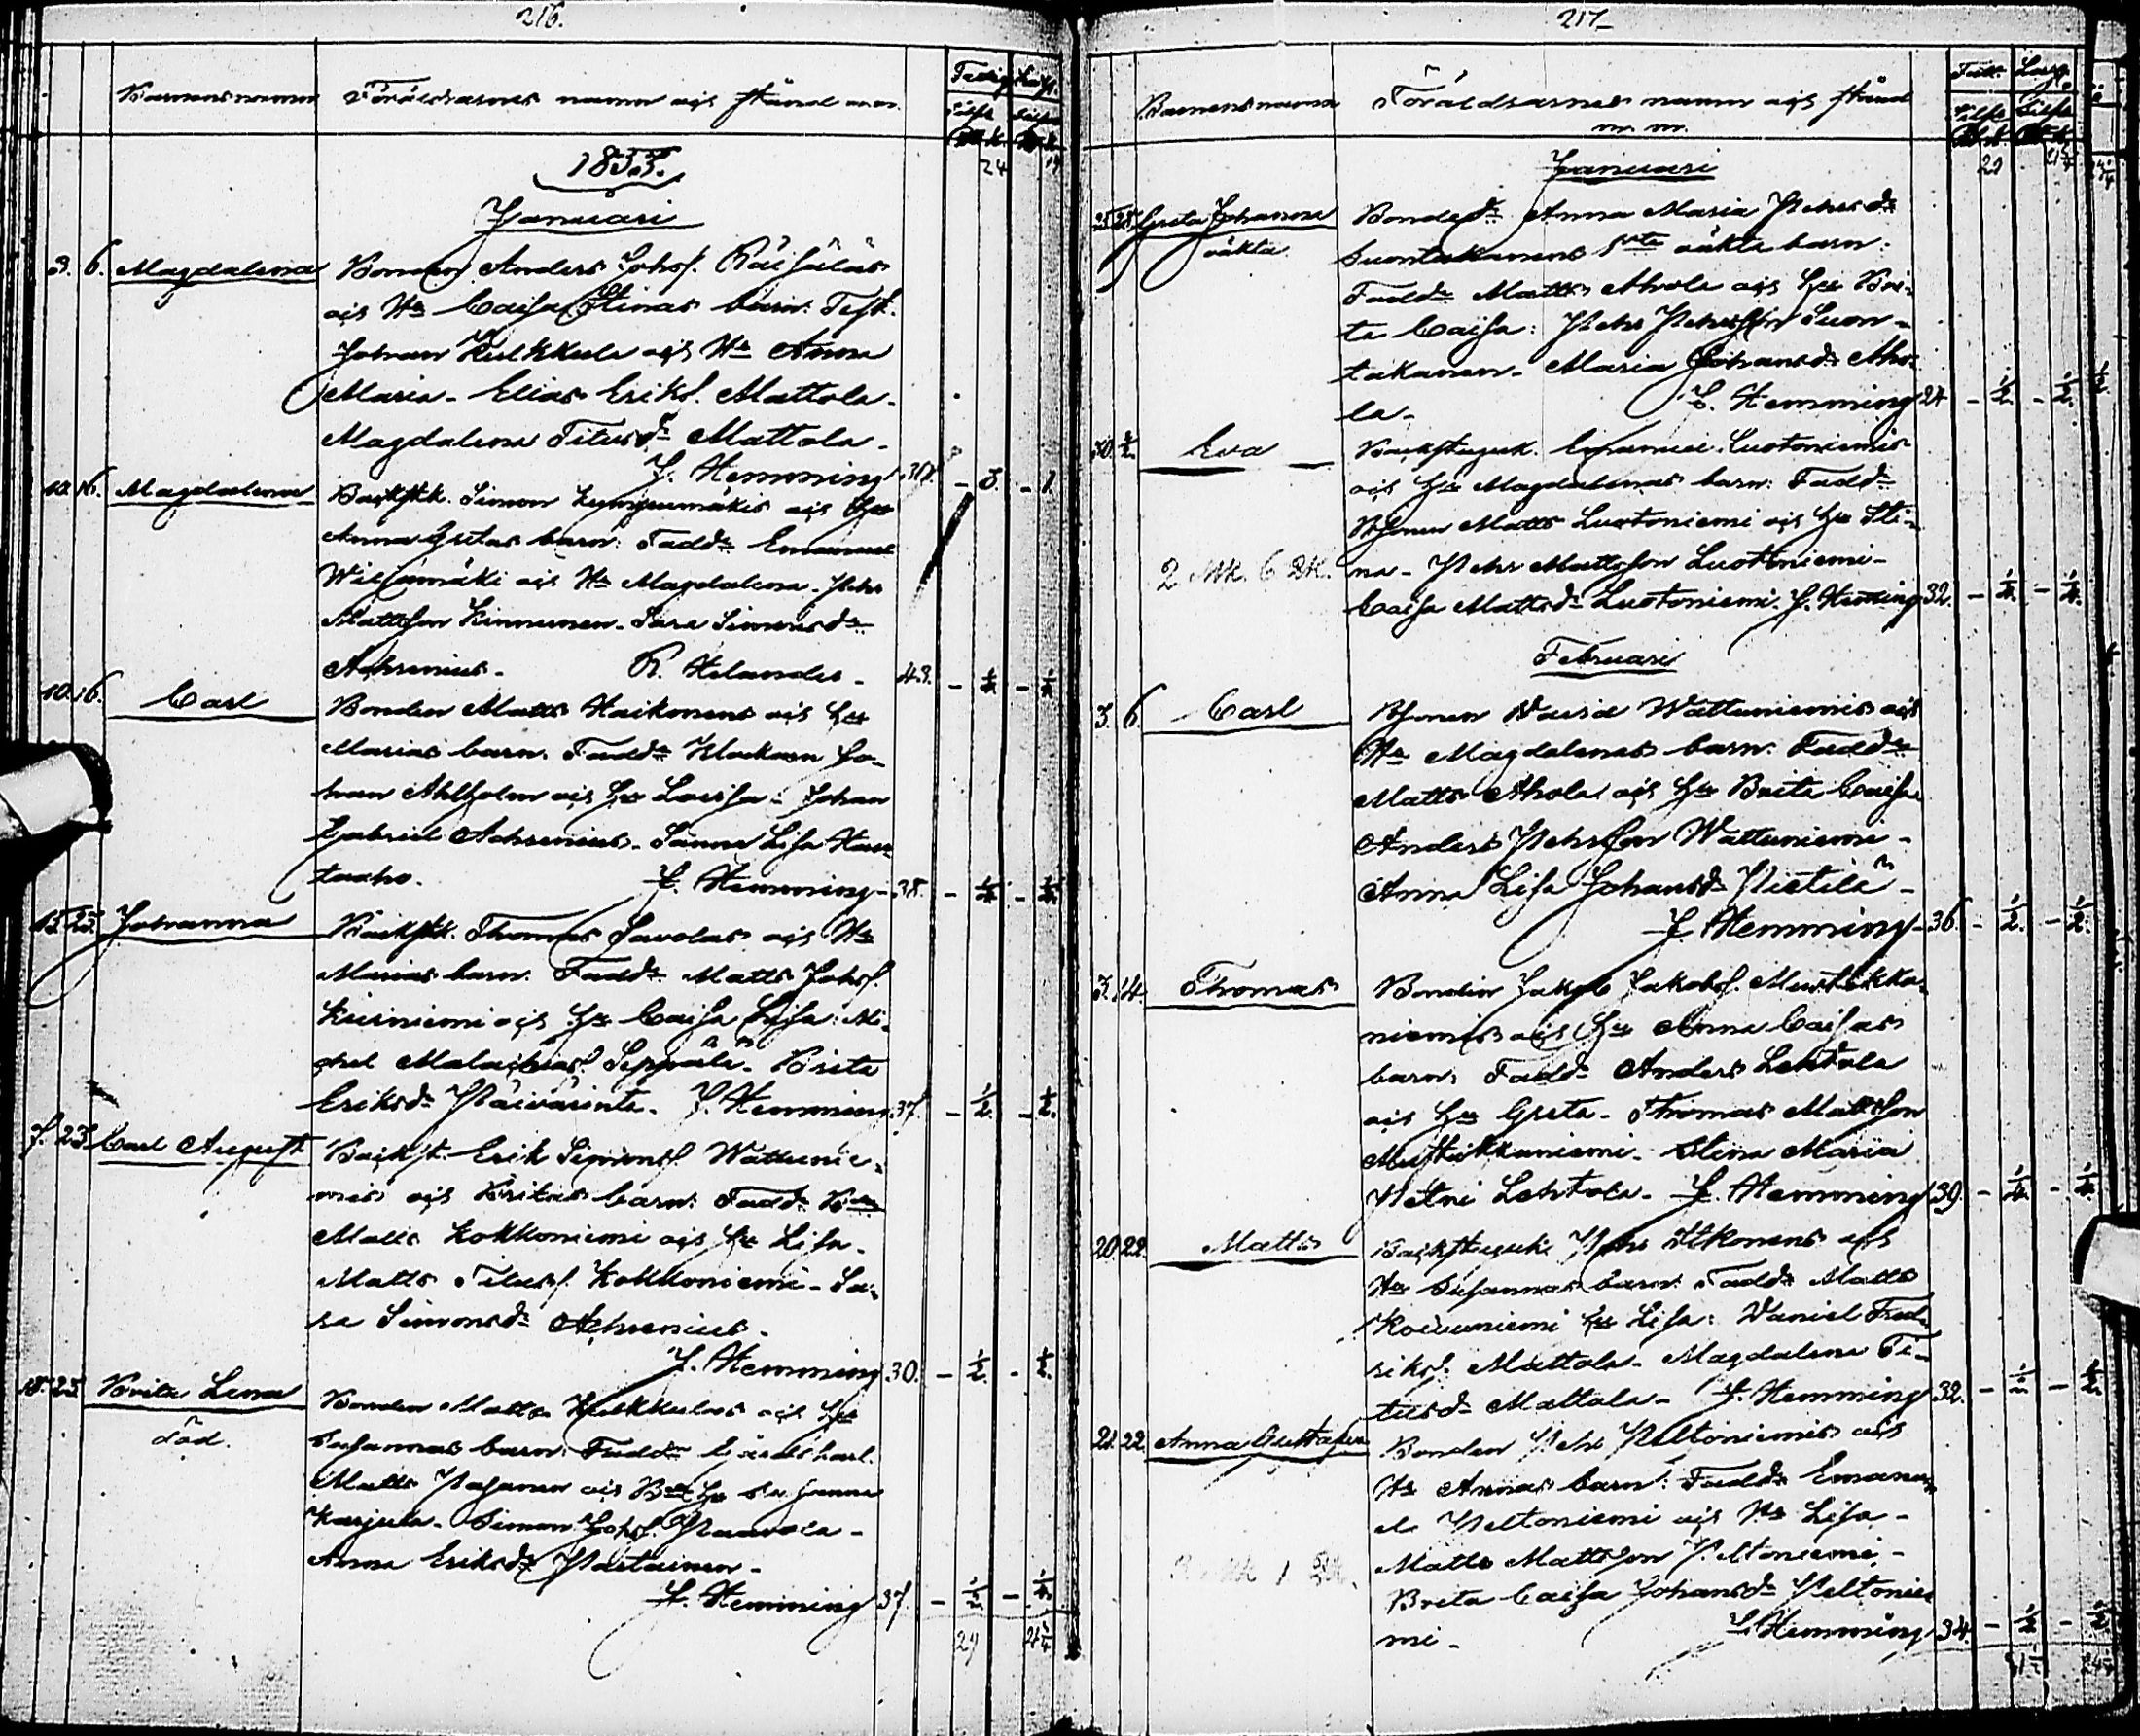 216.
Barnens namn Föräldrarnes namn och stånd m.m.
1833.
Januari
3. 6. Magdalena Bonden Anders Johs. Räihäläs
och Hu Caisa Stinas barn: Test.
Johan Kulkkula och Hu Anna
Maria - Elias Eriks. Mattola -
Magdalena Titusdr Mattola -
J. Hemming 30.
10. 16. Magdalena Backstk. Simon och Hu
Anna Gretas barn: Faddr Emanuel
Wiljamäki och Hu Magdalena - Pehr
Mattsson Kinnunen - Sara Simonsdr
Achrenius - R. Helander - 43.
10. 16. Carl Bonden Matts Haikonens och Hu
Marias barn. Faddr Klockarn Jo-
han Ahlholm och Hu Lovisa - Johan
Gabriel Achrenius - Sanna Lisa Hau-
taaho. J. Hemming - 38.
15. 25. Johanna Backstk. Thomas Savolas och Hu
Marias barn: Faddr Matts Johs.
Kiurniemi och Hu Caisa Lisa: Mi-
chel Malachias. Seppälä - Brita
Eriksdr Päivärinta. J. Hemming 37.
7. 23. Carl August Backst. Erik Simons. Wattunie-
mis och Britas barn: Faddr
Matts Kokkoniemi och Hu Lisa -
Matts Titus. Kokkoniemi - Sa-
ra Simonsdr Achrenius -
J. Hemming 30.
18. 25. Brita Lena Bonden Matts Kulkkulas och Hu
död. Susannas barn: Faddr
Matts Pasanen och Hu Susanna
Karjula - Simon Johs. Paavola -
Anna Eriksdr Partainen -
J. Hemming 37.
29
217
Barnens namn Föräldrarnes namn och stånd
m. m.
Januari
25. 28. Greta Johanna Bondedr Anna Maria Pehrsdr
oäkta Suontakanens 1sta oäkta barn:
Faddr Matts Ahola och Hu Bri-
ta Caisa: Pehr Pehrsson Suon-
takanen - Maria Johansdr Aho-
la - J. Hemming 24
30. Eva Backstuguk. Emanuel Luotoniemis
och Hu Magdalenas barn: Faddr
Matts Luotoniemi och Hu Sti-
2 Mk. 6 2K. na - Pehr Mattsson Luotoniemi -
Caisa Mattsdr Luotoniemi. J. Hemming 32.
Februari
3. 6. Carl Wattuniemis och
Hu Magdalenas barn: Faddr
Matts Ahola och Hu Brita Caisa
Anders Pehrsson Wattuniemi -
Anna Lisa Johansdr Pietilä -
J. Hemming - 36.
3. 14. Thomas Bonden Jakob Jakobs. Mustikka-
niemis och Hu Anna Caisas
barn: Faddr Anders Lehtola
och Hu Greta - Thomas Mattsson
Mustikkaniemi - Stina Maria
Lehtola - J. Hemming 39.
20. 22. Matts Backstuguk. Pehr Itkonens och
Hu Susannas barn: Faddr Matts
Koivuniemi Hu Lisa: Daniel Fred-
riks. Mattola - Magdalena Ti-
tusdr Mattola - J. Hemming 32.
21. 22. Anna Gustava Bonden Pehr Peltoniemis och
Hu Annas barn: Faddr Emanu-
el Peltoniemi och Hu Lisa -
Matts Mattsson Peltoniemi -
Brita Caisa Johansdr Peltonie-
mi - J. Hemming 34.